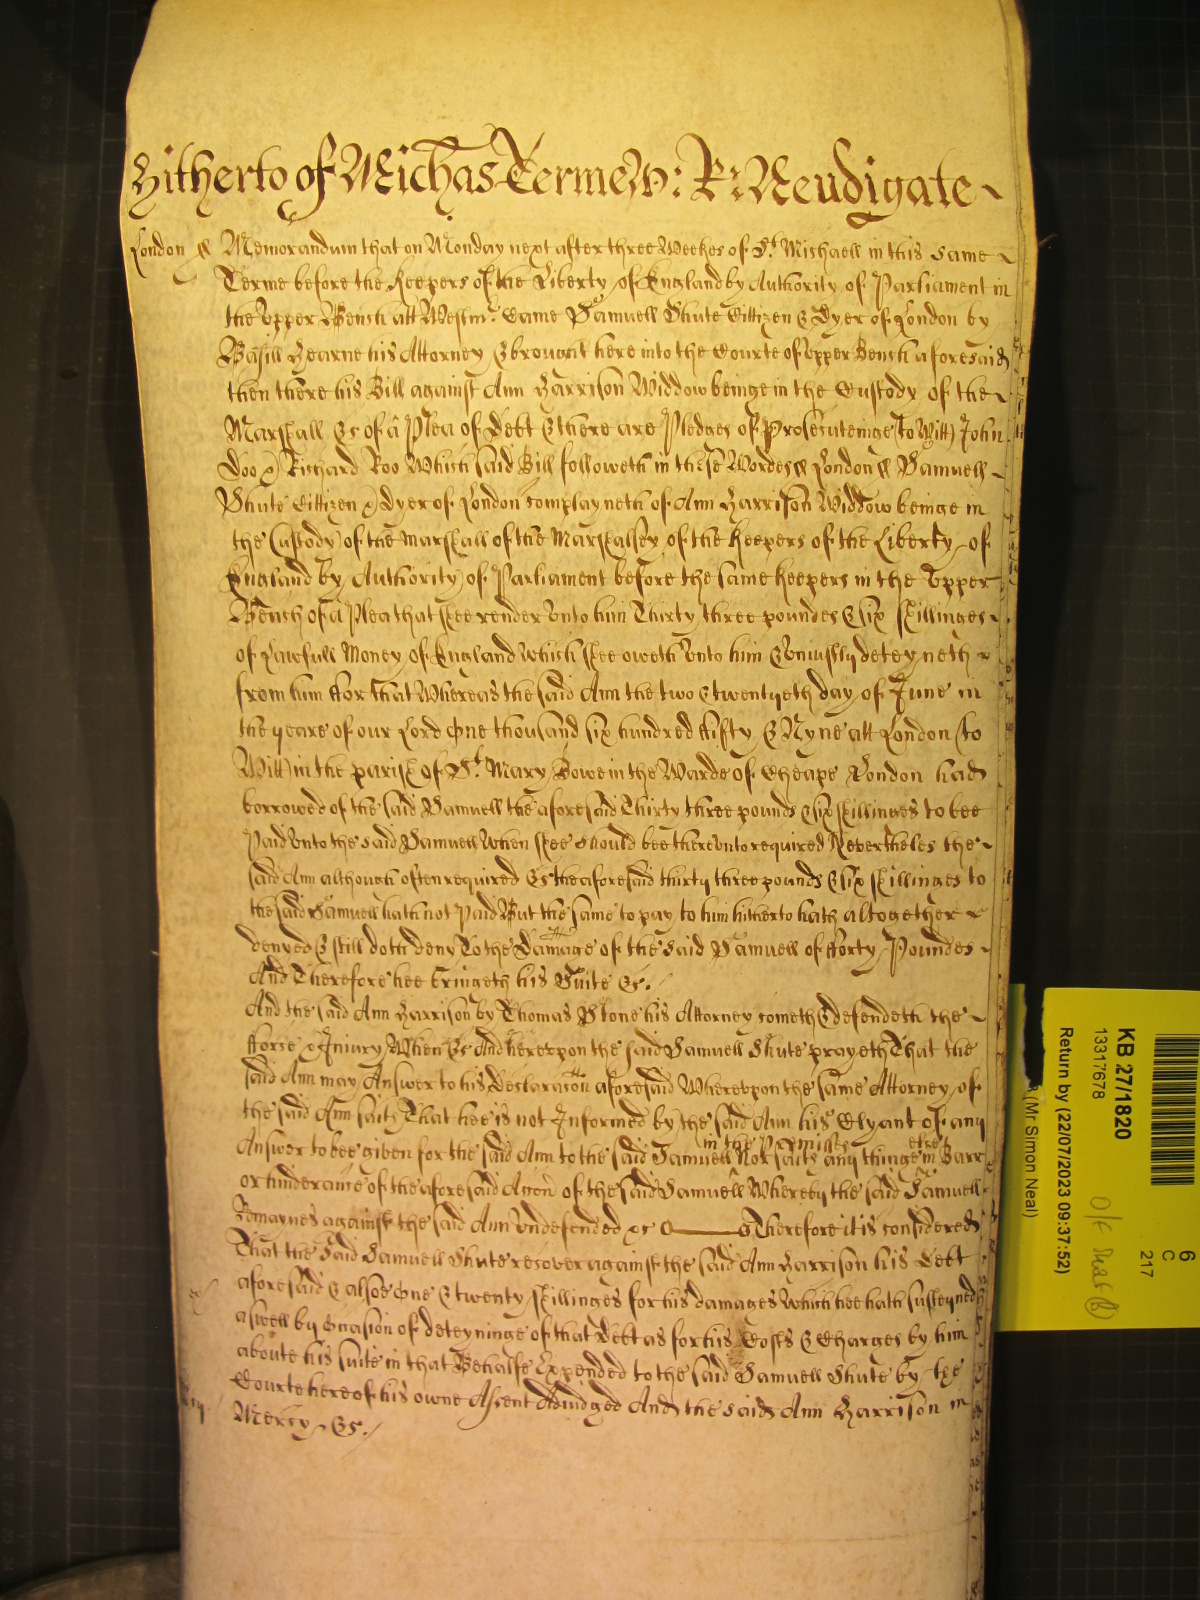 Hitherto of Michas Terme W: R: Neudigate
London ss Memorandum that on Monday next after three Weekes of St. Michaell in this same
Terme before the Keepers of the Liberty of England by Authority of Parliament in
the Upper Bench att Westmr. Came Samuell Shute Cittizen & Dyer of London by
Basill Hearne his Attorney & brought here into the Courte of Upper Bench aforesaid
then there his Bill against Ann Harrison Widdow beinge in the Custody of the
Marshall &c of a Plea of Debt & there are Pledges of Prosecuteinge (to Witt) John
Doo & Richard Roo Which said Bill followeth in these Wordes ss London ss Samuell
Shute Cittizen & Dyer of London complayneth of Ann Harrison Widdow beinge in
the Custody of the Marshall of the Marshalsey of the Keepers of the Liberty of
England by Authority of Parliament before the same Keepers in the Upper
Bench of a Plea that shee render unto him Thirty three poundes & six shillinges
of Lawfull Money of England which shee oweth unto him & uniustly deteyneth
from him ffor that Whereas the said Ann the two & twentyeth day of June in
the yeare of our Lord One thousand six hundred ffifty & Nyne att London (to
Witt) in the parish of St. Mary Bowe in the Warde of Cheape London had
borrowed of the said Samuell the aforesaid Thirty three pounds & six shillinges to bee
Paid unto the said Samuell When shee should bee thereunto required Nevertheles the
said Ann although often required &c the aforesaid thirty three pounds & six shillinges to
the said Samuell hath not Paid But the same to pay to him hitherto hath altogether
denyed & still doth deny To the Damage of the said Samuell of fforty Poundes
And Therefore hee bringeth his Suite &c.
And the said Ann Harrison by Thomas Stone his Attorney cometh & defendeth the
fforce & Iniury When &c And hereupon the said Samuell Shute prayeth That the
said Ann may Answer to his Declaracon aforesaid Whereupon the same Attorney of
the said Ann saith That hee is not Informed by the said Ann his Clyant of any
Answer to bee given for the said Ann to the said Samuell in the Premisses Nor saith any thinge else in Barr
or hinderance of the aforesaid Accon of the said Samuell Whereby the said Samuell
Remaynes against the said Ann Undefended &c Therefore it is considered
That the Said Samuell Shute recover against the said Ann Harrison his Debt
aforesaid & alsoe One & twenty shillinges for his damages Which hee hath susteyned
aswell by Occasion of deteyninge of that Debt as for his Costs & Charges by him
aboute his suite in that Behalfe Expended to the said Samuell Shute by the
Courte here of his owne Assent Adiudged And the said Ann Harrison in
Mercy &c.
KB 27/1820
13317678
Return by (22/07/2023 09:37:52)
(Mr Simon Neal)
6
C
217